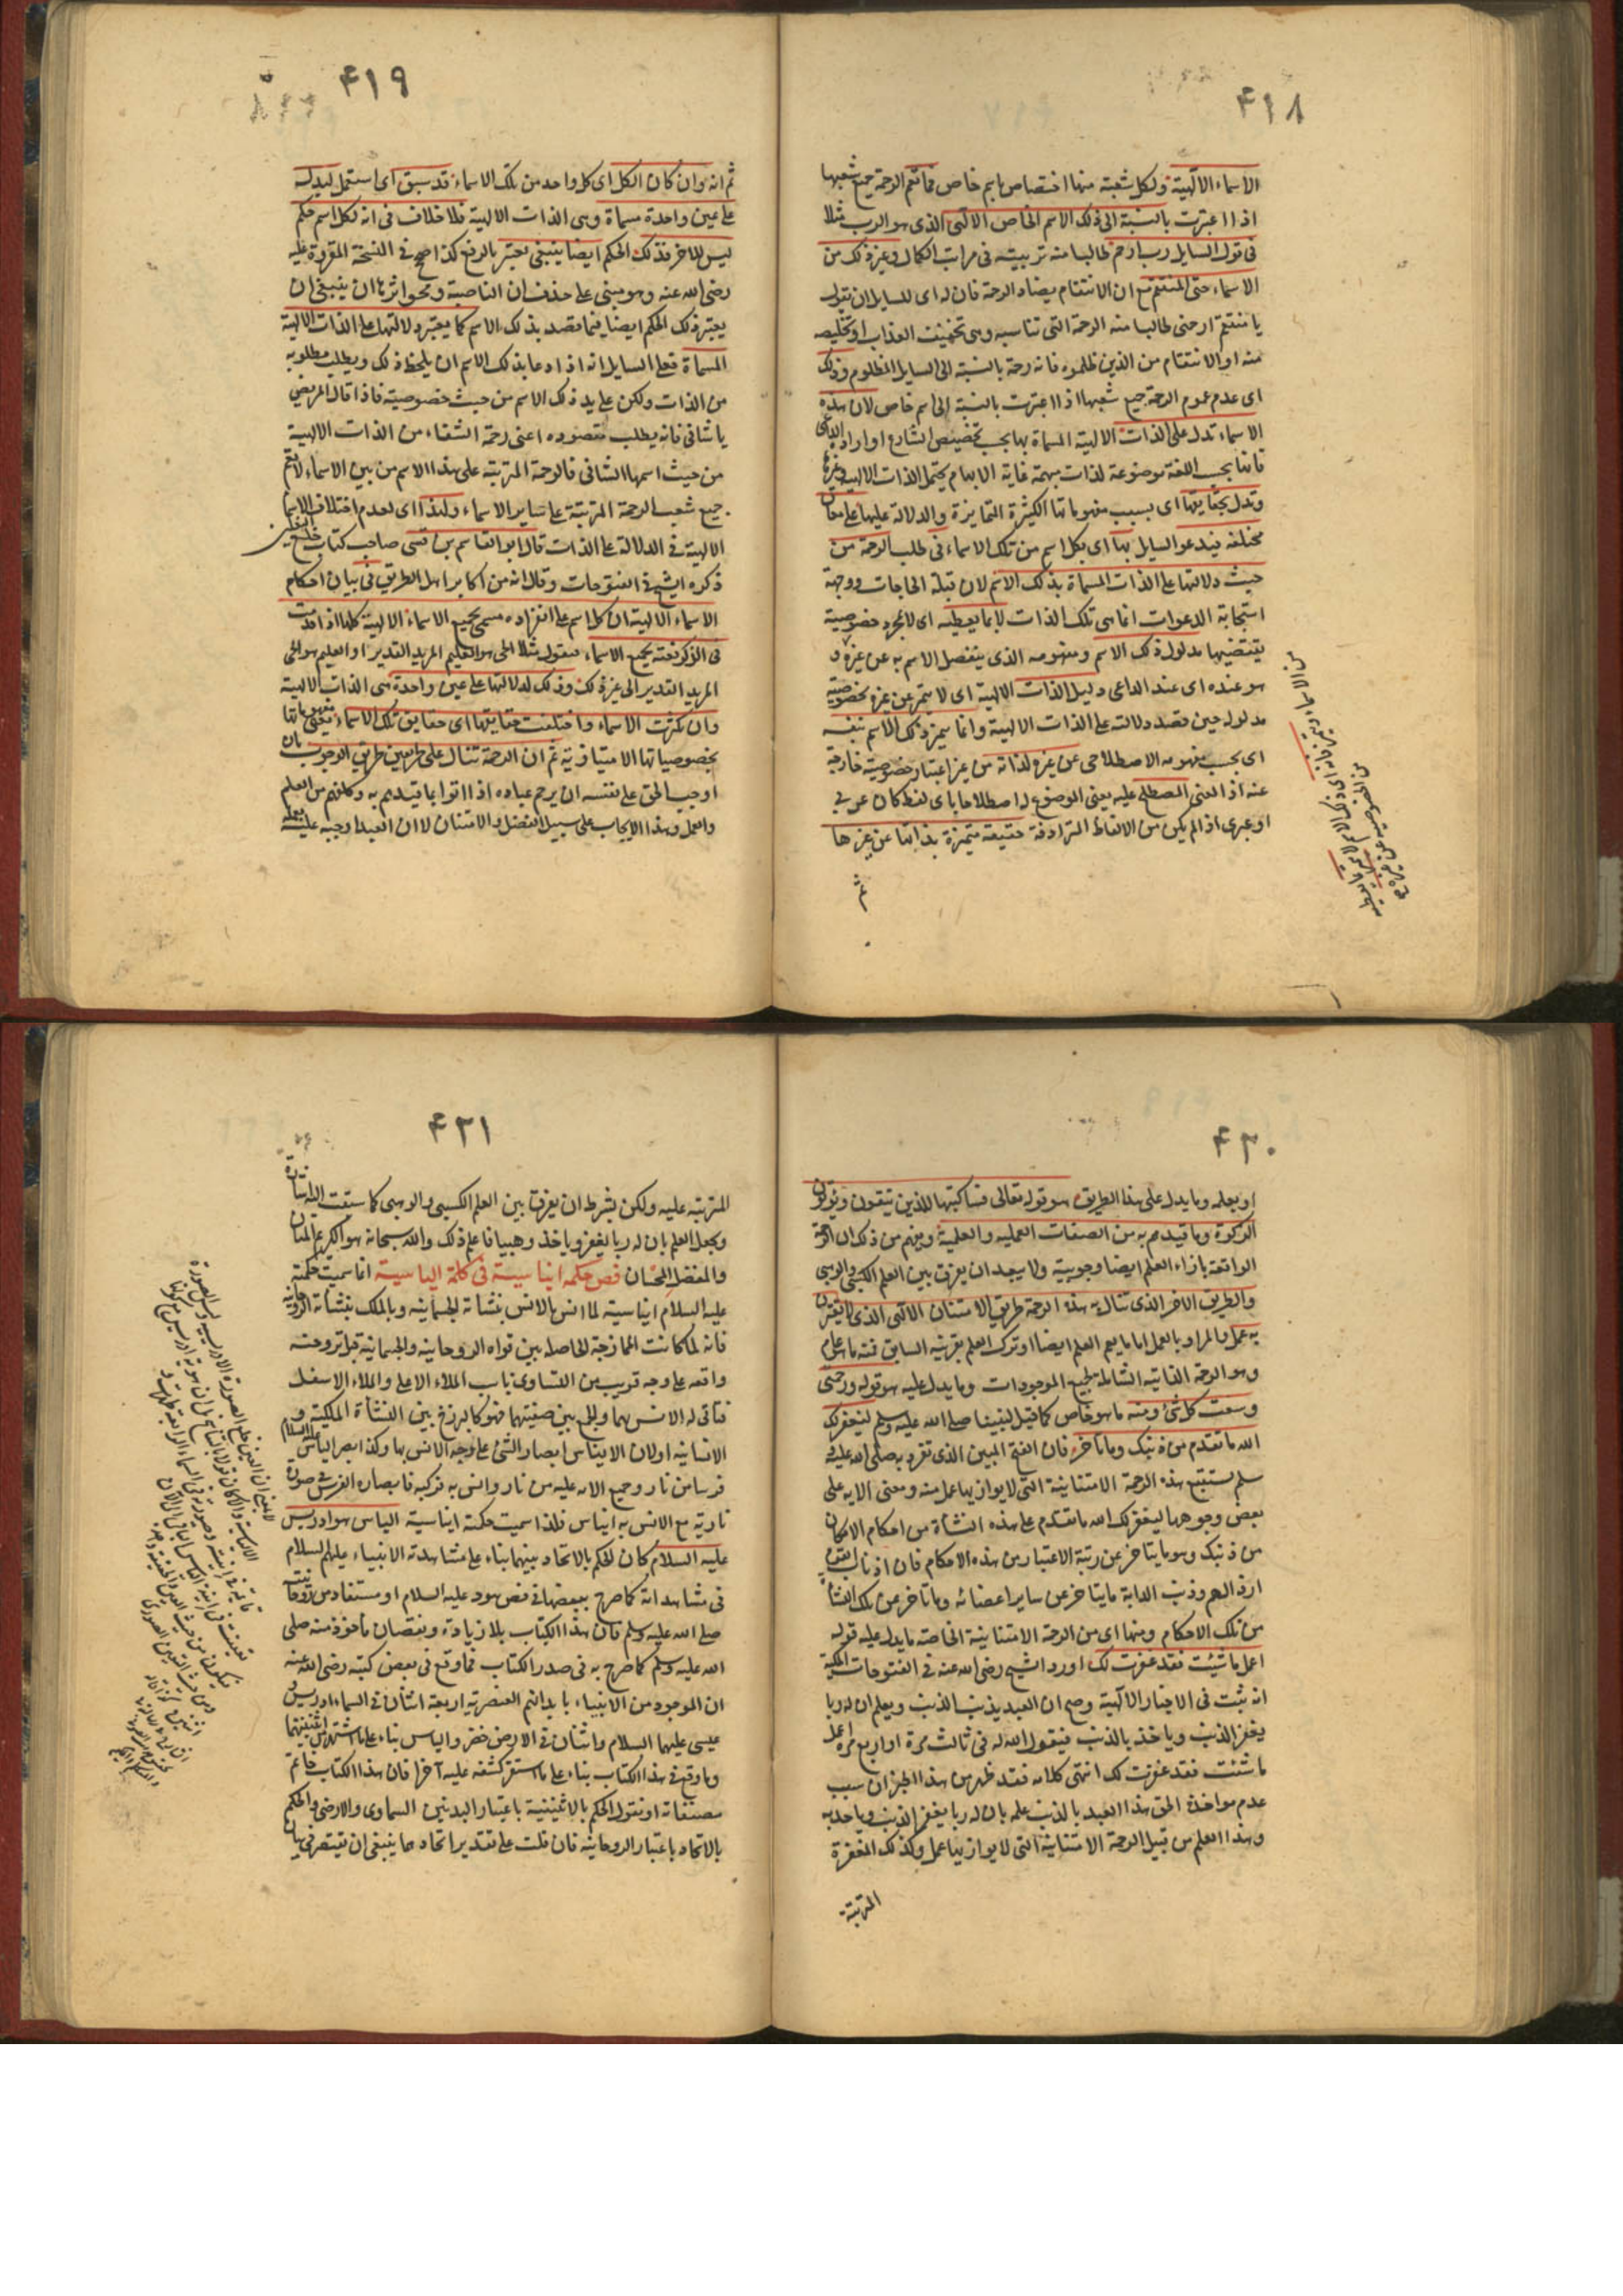 ٤١٨
الاسماء الالهية ولكل شعبة منها اختصاص باسم خاص فما تعم الرحمة جميع شعبها
اذا اعتبرت بالنسبة الى ذلك الاسم الخاص الالهى الذى هو الرب مثلا
فى قول السايل رب ارحم طالبا منه تربيته فى مراتب الكمال وغير ذلك من
الاسماء حتى المنتقم مع ان الانتقام يضاد الرحمة فان له اى للسايل ان يقول
يا منتقم ارحمنى طالبا منه الرحمة التى تناسبه وهى تخفيف العذاب او تخليصه
منه او الانتقام من الذين ظلموه فانه رحمة بالنسبة الى السايل المظلوم وذلك
اى عدم عموم الرحمة جميع شعبها اذا اعتبرت بالنسبة الى اسم خاص لان هذه
الاسماء تدل على الذات الالهية المسماة بها بحسب تخصيص الشارع او ارادة الداعى
فانها بحسب اللغة موضوعة لذات مبهمة غاية الابهام يحتمل الذات الالهية وغيرها
وتدل بحقايقها اى بسبب مفهوماتها الكثيرة المتمايزة والدلالة عليها على معان
مختلفة فيدعو السايل بها اى بكل اسم من تلك الاسماء فى طلب الرحمة من
حيث دلالتها على الذات المسماة بذلك الاسم لان قبلة الحاجات ووجهة
استجابة الدعوات انما هى تلك الذات لا بما يعطيه اى لا بمجرد خصوصية
يقتضيها مدلول ذلك الاسم ومفهومه الذى ينفصل الاسم به عن غيره و
هو عنده اى عند الداعى دليل الذات الالهية اى لا يتميز عن غيره بخصوصية
مدلوله حين قصد دلالته على الذات الالهية وانما يتميز ذلك الاسم بنفسه
اى بحسب مفهومه الاصطلاحى عن غيره لذاته من غير اعتبار خصوصية خارجة
عنه اذ المعنى المصطلح عليه يعنى الموضوع له اصطلاحا باى لفظ كان عربى
او عبرى اذ لم يكن من الالفاظ المترادفة حقيقة متميزة بذاتها عن غيرها
٤١٩
ثم انه وان كان الكل اى كل واحد من تلك الاسماء قد سيق اى استعمل ليدل
على عين واحدة مسماة وهى الذات الالهية فلا خلاف فى انه لكل اسم حكم
ليس للاخر فذلك الحكم ايضا ينبغى يعتبر بالرفع كذا صح فى النسخة المقروة عليه
رضى الله عنه وهو مبنى على حذف ان الناصبة ومحو اثرها ان ينبغى ان
يعتبر ذلك الحكم ايضا فيما قصد بذلك الاسم كما يعتبر دلالتها على الذات الالهية
المسماة فعلى السايل انه اذا دعا بذلك الاسم ان يلحظ ذلك ويطلب مطلوبه
من الذات ولكن على يد ذلك الاسم من حيث خصوصيته فاذا قال المريض
يا شافى فانه يطلب مقصوده اعنى رحمة الشفاء من الذات الالهية
من حيث اسمها الشافى فالرحمة المترتبة على هذا الاسم من بين الاسماء لا تعم
جميع شعب الرحمة المترتبة على ساير الاسماء ولهذا اى لعدم اختلاف الاسماء
الالهية فى الدلالة على الذات قال ابو القاسم بن قسى صاحب كتاب خلع النعلين
ذكره الشيخ فى الفتوحات وقال انه من اكابر اهل الطريق فى بيان احكام
الاسماء الالهية ان كل اسم على انفراده مسمى بجميع الاسماء الالهية كلها اذا قدمت
فى الذكر نعته بجميع الاسماء فتقول مثلا الحى هو العليم المريد القدير او العليم هو الحى
المريد القدير الى غير ذلك وذلك لدلالتها على عين واحدة هى الذات الالهية
وان تكثرت الاسماء واختلفت حقايقها اى حقايق تلك الاسماء يعنى مفهوماتها
بخصوصياتها الامتيازية ثم ان الرحمة تنال على طريقين طريق الوجوب بان
اوجب الحق على نفسه ان يرحم عباده اذا اتوا بما قيدهم به وكلفهم من العلم
والعمل وهذا الايجاب على سبيل الفضل والامتنان لا ان العبد اوجب عليه بعمله
٤٢٠
او بعلمه وما يدل على هذا الطريق هو قوله تعالى فساكتبها للذين يتقون ويؤتون
الزكوة وما قيدهم به من الصفات العملية والعلمية ويفهم من ذلك ان الرحمة
الواقعة بازاء العلم ايضا وجوبية ولا يبعد ان يفرق بين العلم الكسبى والوهبى
والطريق الاخر الذى تنال به هذه الرحمة طريق الامتنان الالهى الذى لا يقترن
به عمل والمراد بالعمل اما ما يعم العلم ايضا او ترك العلم بقرينة السابق فمنه ما هو عام
وهو الرحمة الذاتية الشاملة لجميع الموجودات وما يدل عليه هو قوله ورحمتى
وسعت كل شئ ومنه ما هو خاص كما قيل لنبينا صلى الله عليه وسلم ليغفر لك
الله ما تقدم من ذنبك وما تاخر فان الفتح المبين الذى تفرد به صلى الله عليه و
سلم يستتبع هذه الرحمة الامتنانية التى لا يوازيها عمل منه ومعنى الاية على
بعض وجوهها ليغفر لك الله ما تقدم على هذه النشاة من احكام الامكان
من ذنبك وهو ما يتاخر عن رتبة الاعتبار من هذه الاحكام فان اذناب القوم
ارذالهم وذنب الدابة ما يتاخر عن ساير اعضائه وما تاخر عن تلك النشاة
من تلك الاحكام ومنها اى من الرحمة الامتنانية الخاصة ما يدل عليه قوله
اعمل ما شئت فقد غفرت لك اورد الشيخ رضى الله عنه فى الفتوحات المكية
انه ثبت فى الاخبار الالهية وصح ان العبد يذنب الذنب ويعلم ان له ربا
يغفر الذنب وياخذ بالذنب فيقول الله له فى ثالث مرة او رابع مرة اعمل
ما شئت فقد غفرت لك انتهى كلامه فقد ظهر من هذا الخبر ان سبب
عدم مواخذة الحق هذا العبد بالذنب علمه بان له ربا يغفر الذنب وياخذ به
وهذا العلم من قبيل الرحمة الامتنانية التى لا يوازيها عمل وكذلك المغفرة
المترتبة
٤٢١
المترتبة عليه ولكن بشرط ان يفرق بين العلم الكسبى والوهبى كما سبقت اليه اشارة
ويجعل العلم بان له ربا يغفر وياخذ وهبيا فاعلم ذلك والله سبحانه هو الكريم المنان
والمفضل الحنان فص حكمة ايناسية فى كلمة الياسية انما سميت حكمته
عليه السلام ايناسية لما انس بالانس بنشاته الجسمانية وبالملك بنشاته الروحانية
فانه لما كانت الممازجة الحاصلة بين قواه الروحانية والجسمانية قبل تروحنه
واقعه على وجه قريب من التساوى ناسب الملاء الاعلى والملاء الاسفل
فتاتى له الانس بهما والجمع بين صفتيهما فهو كالبرزخ بين النشاة الملكية و
الانسانية او لان الايناس ابصار الشئ على وجه الانس بها وكذا ابصر الياس عليه السلام
فرسا من نار وجميع آلاته عليه من نار وانس به فركبه فابصاره الفرس فى صورة
نارية مع الانس به ايناس فلذا سميت حكمته ايناسية الياس هو ادريس
عليه السلام كان الحكم بالاتحاد بينهما بناء على مشاهدته الانبياء عليهم السلام
فى مشاهداته كما صرح ببعضها فى فص هود عليه السلام او مستفاد من روحانيته
صلى الله عليه وسلم فان هذا الكتاب بلا زيادة ونقصان ماخوذ منه صلى
الله عليه وسلم كما صرح به فى صدر الكتاب فما وقع فى بعض كتبه رضى الله عنه
ان الموجود من الانبياء بابدانهم العنصرية اربعة اثنان فى السماء ادريس و
عيسى عليهما السلام واثنان فى الارض خضر والياس بناء على ما اشتهر من اثنينيتهما
وما وقع فى هذا الكتاب بناء على ما استقر كشفه عليه آخرا فان هذا الكتاب خاتم
مصنفاته او نقول الحكم بالاثنينية باعتبار البدنين السماوى والارضى والحكم
بالاتحاد باعتبار الروحانية فان قلت على تقدير اتحادهما ينبغى ان يقتصر فى بيان